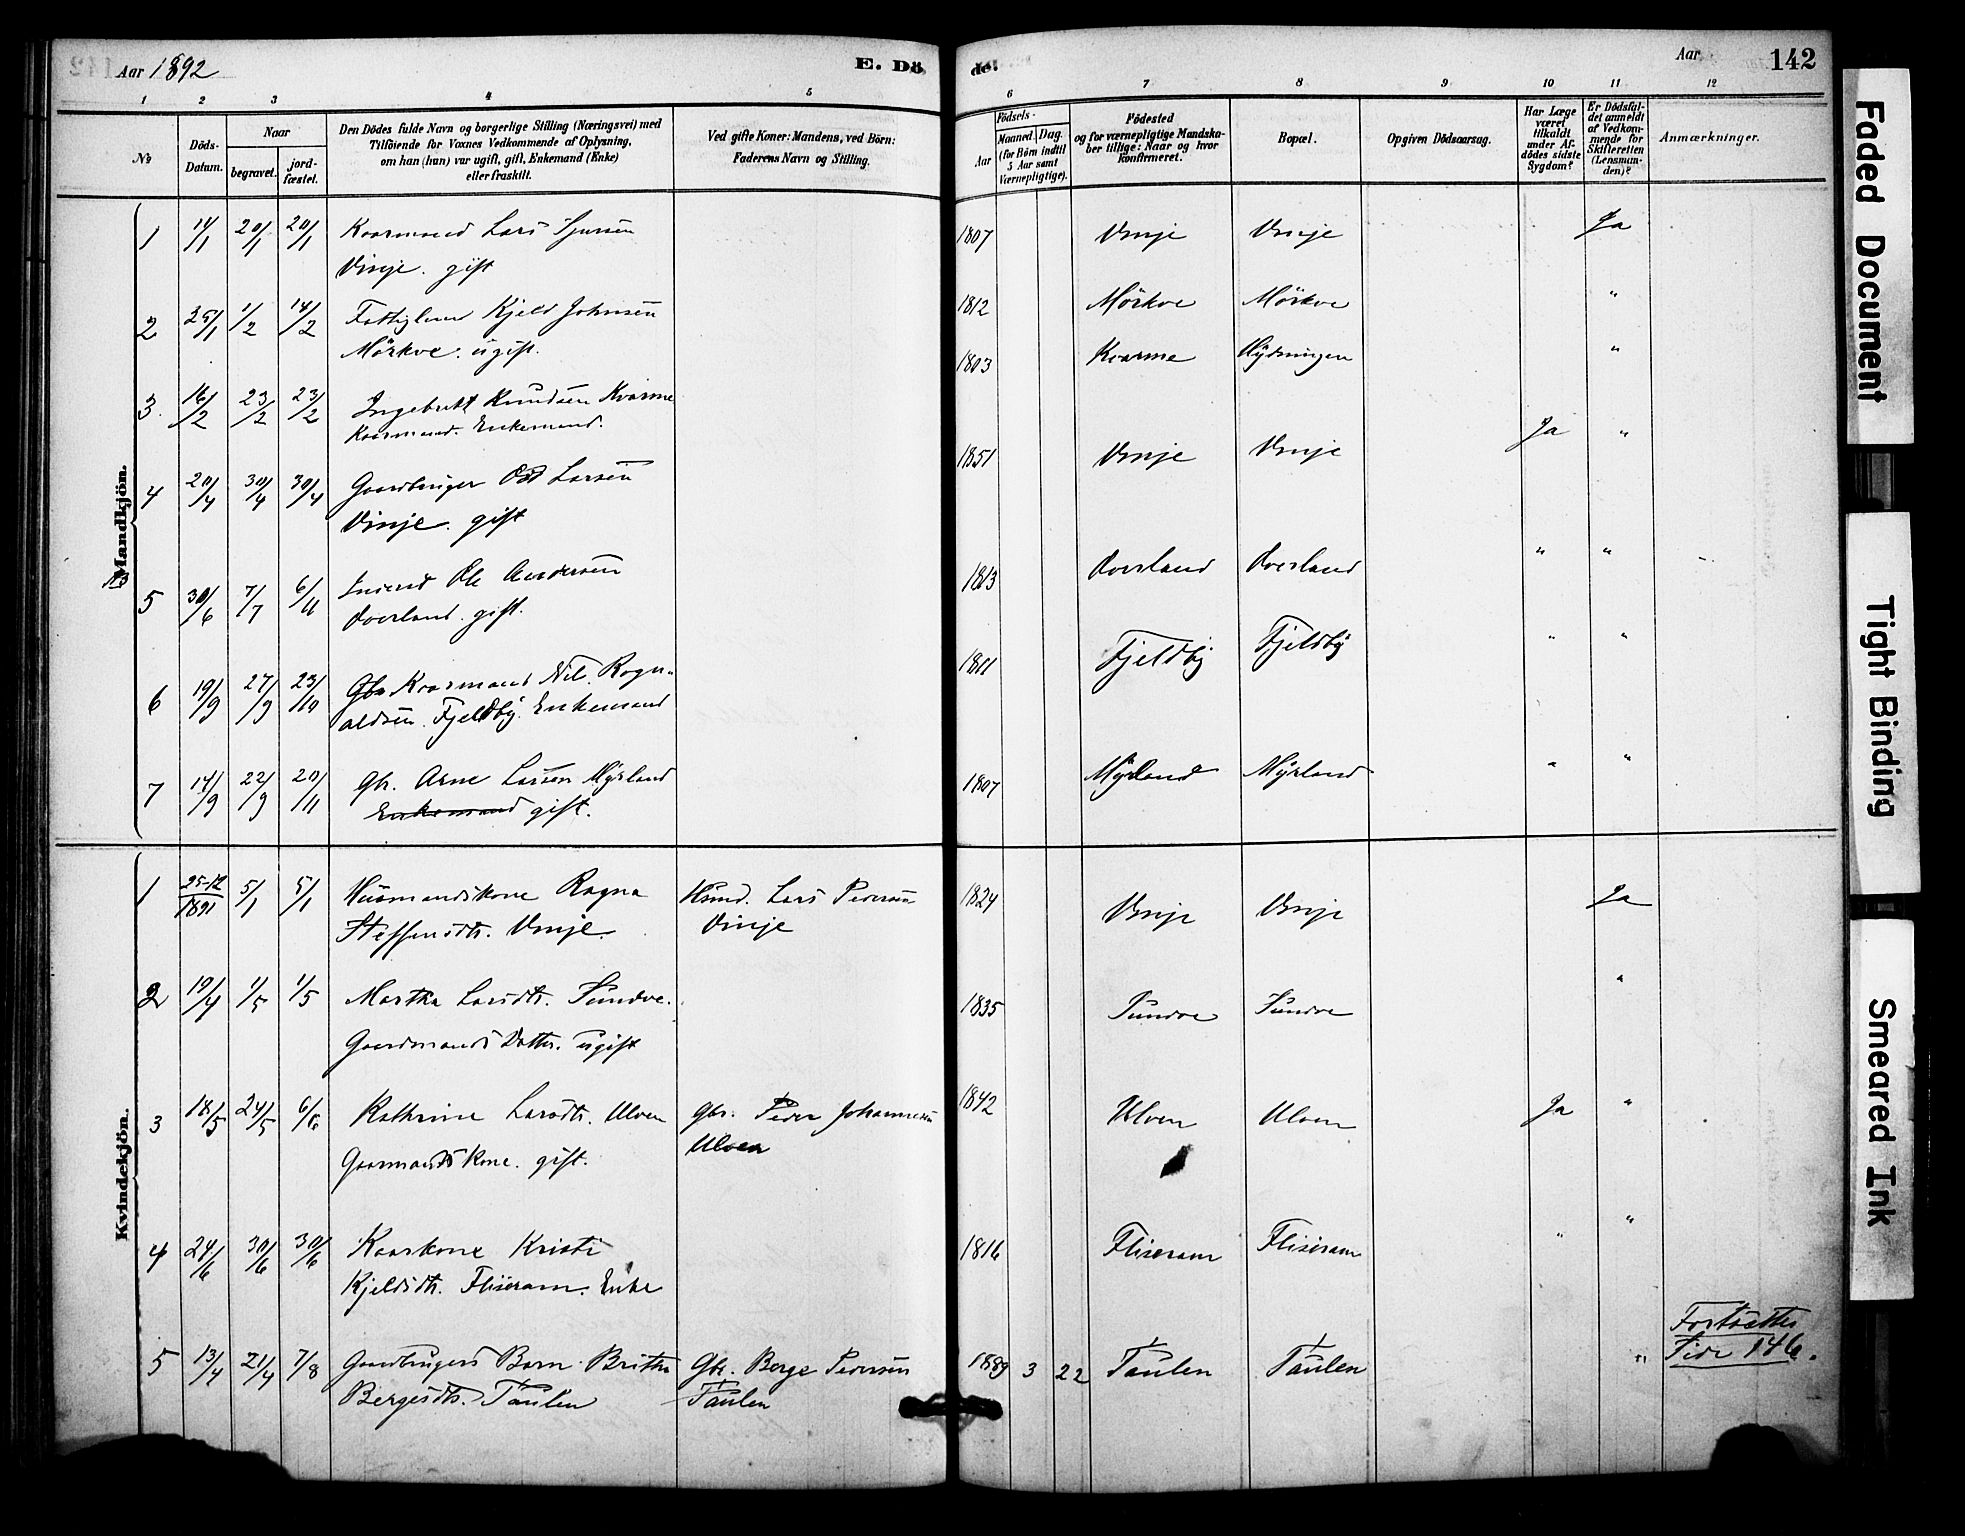 Aar 1892
E. Dö
de.
Aar
142
1 2 3 4 5 6 7 8 9 10 11 12
No
Döds-
Datum.
Naar
begravet.
jord-
fæstet.
Den Dödes fulde Navn og borgerlige Stilling (Næringsvei) med
Tilföiende for Voxnes Vedkommende af Oplysning,
om han (hun) var ugift, gift, Enkemand (Enke)
eller fraskilt.
Ved gifte Koner: Mandens, ved Börn:
Faderens Navn og Stilling.
Födsels-
Aar
Maaned. Dag.
(for Börn indtil
5 Aar samt
Værnepligtige).
Födested
og for værnepligtige Mandska-
ber tillige: Naar og hvor
konfirmeret.
Bopæl.
Opgiven Dödsaarsag.
Har Læge
været
tilkaldt
under Af-
dödes sidste
Sygdom?
Er Dödsfal-
det anmeldt
af Vedkom-
mende for
Skifteretten
(Lensman-
den)?
Anmærkninger.
Mandkjön.
1 14/1 20/1 20/1 Kaarmand Lars Sjursen 1807 Vinje Vinje Ja
Vinje. gift
2 25/1 1/2 14/2 Kjeld Johnsen 1812 Mörkve Mörkve "
Mörkve. ugift.
3. 16/2 23/2 23/2 Ingebrikt Knudsen Kvarme 1803 Kvarme "
Kaarmand. Enkemand.
4 20/4 30/4 30/4 Gaardbruger Odd Larsen 1851 Vinje Vinje Ja "
Vinje. gift
5 30/6 7/7 6/11 Ole Andersen 1813 Overland Overland " "
Overland. gift.
6 19/9 27/9 23/10 Kaarmand Nils Rogn- 1811 Fjeldby Fjeldby " "
aldsen. Fjeldby. Enkemand
7 14/9 22/9 20/11 Gbr. Arne Larsen Myrland 1807 Myrland Myrland " "
Enkemand gift.
Kvindekjön.
1 25-12/1891 5/1 5/1 Husmandskone Ragna Hsmd. Lars Pedersen 1824 Vinje Vinje Ja
Steffensdtr. Vinje. Vinje
2 19/4 1/5 1/5 Martha Larsdtr. Sundve. 1835 Sundve Sundve "
Gaardmands Datter. ugift
3 18/5 24/5 6/6 Kathrine Larsdtr. Ulven Gbr. Peder Johannesen 1842 Ulven Ulven Ja "
Gaarmands Kone. gift. Ulven
4 24/6 30/6 30/6 Kaarkone Kristi 1816 Fliseram Fliseram " "
Kjeldsdtr. Fliseram. Enke
5 13/4 21/4 7/8 Gaardbrugers Barn. Britha Gbr. Berge Pedersen 1889 3 22 Taulen Taulen "
Bergesdtr. Taulen Taulen
Fortsættes
Side 146.
Faded Document
Tight Binding
Smeared Ink